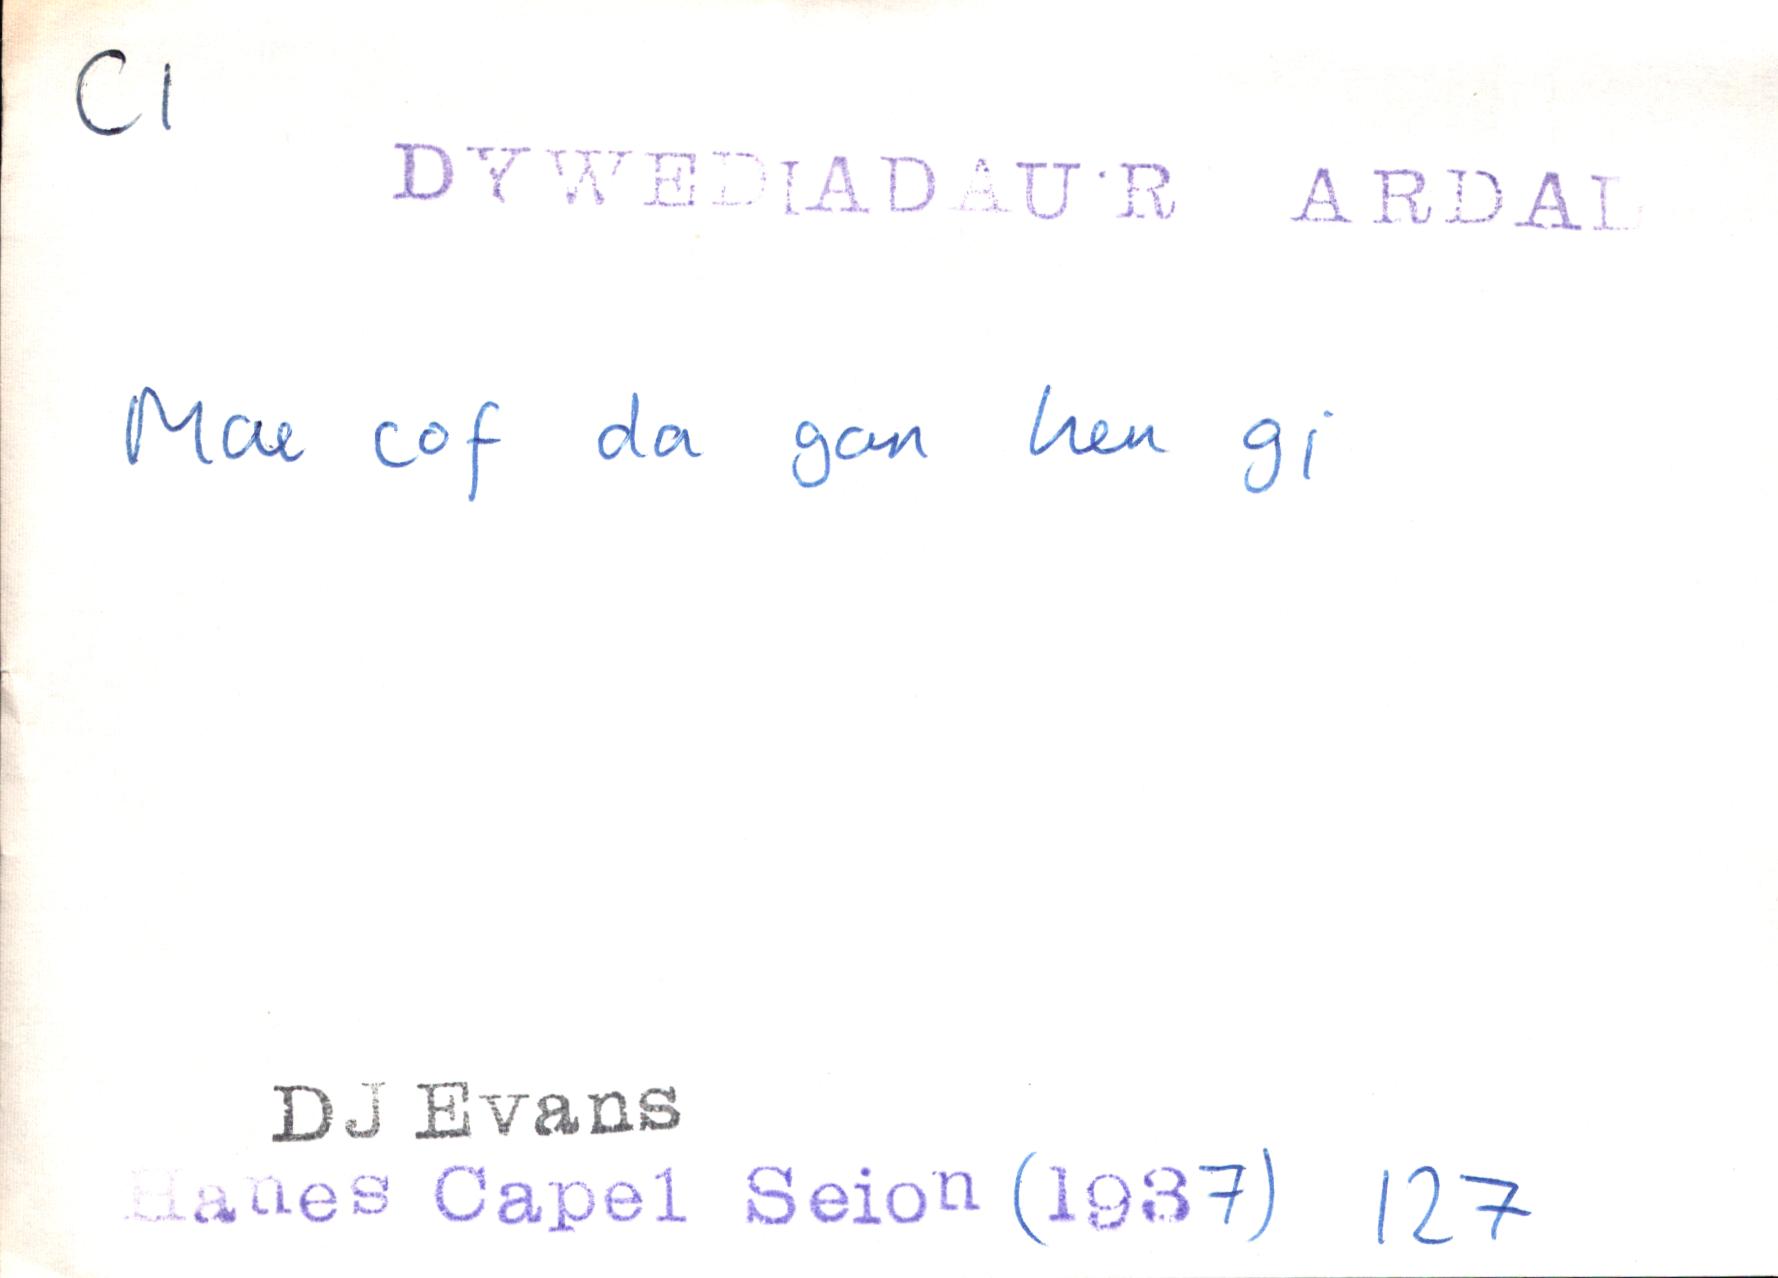 CI
DYWEDIADAU'R ARDAL
Mae cof da gan hen gi
DJ Evans
Hanes Capel Seion (1937) 127